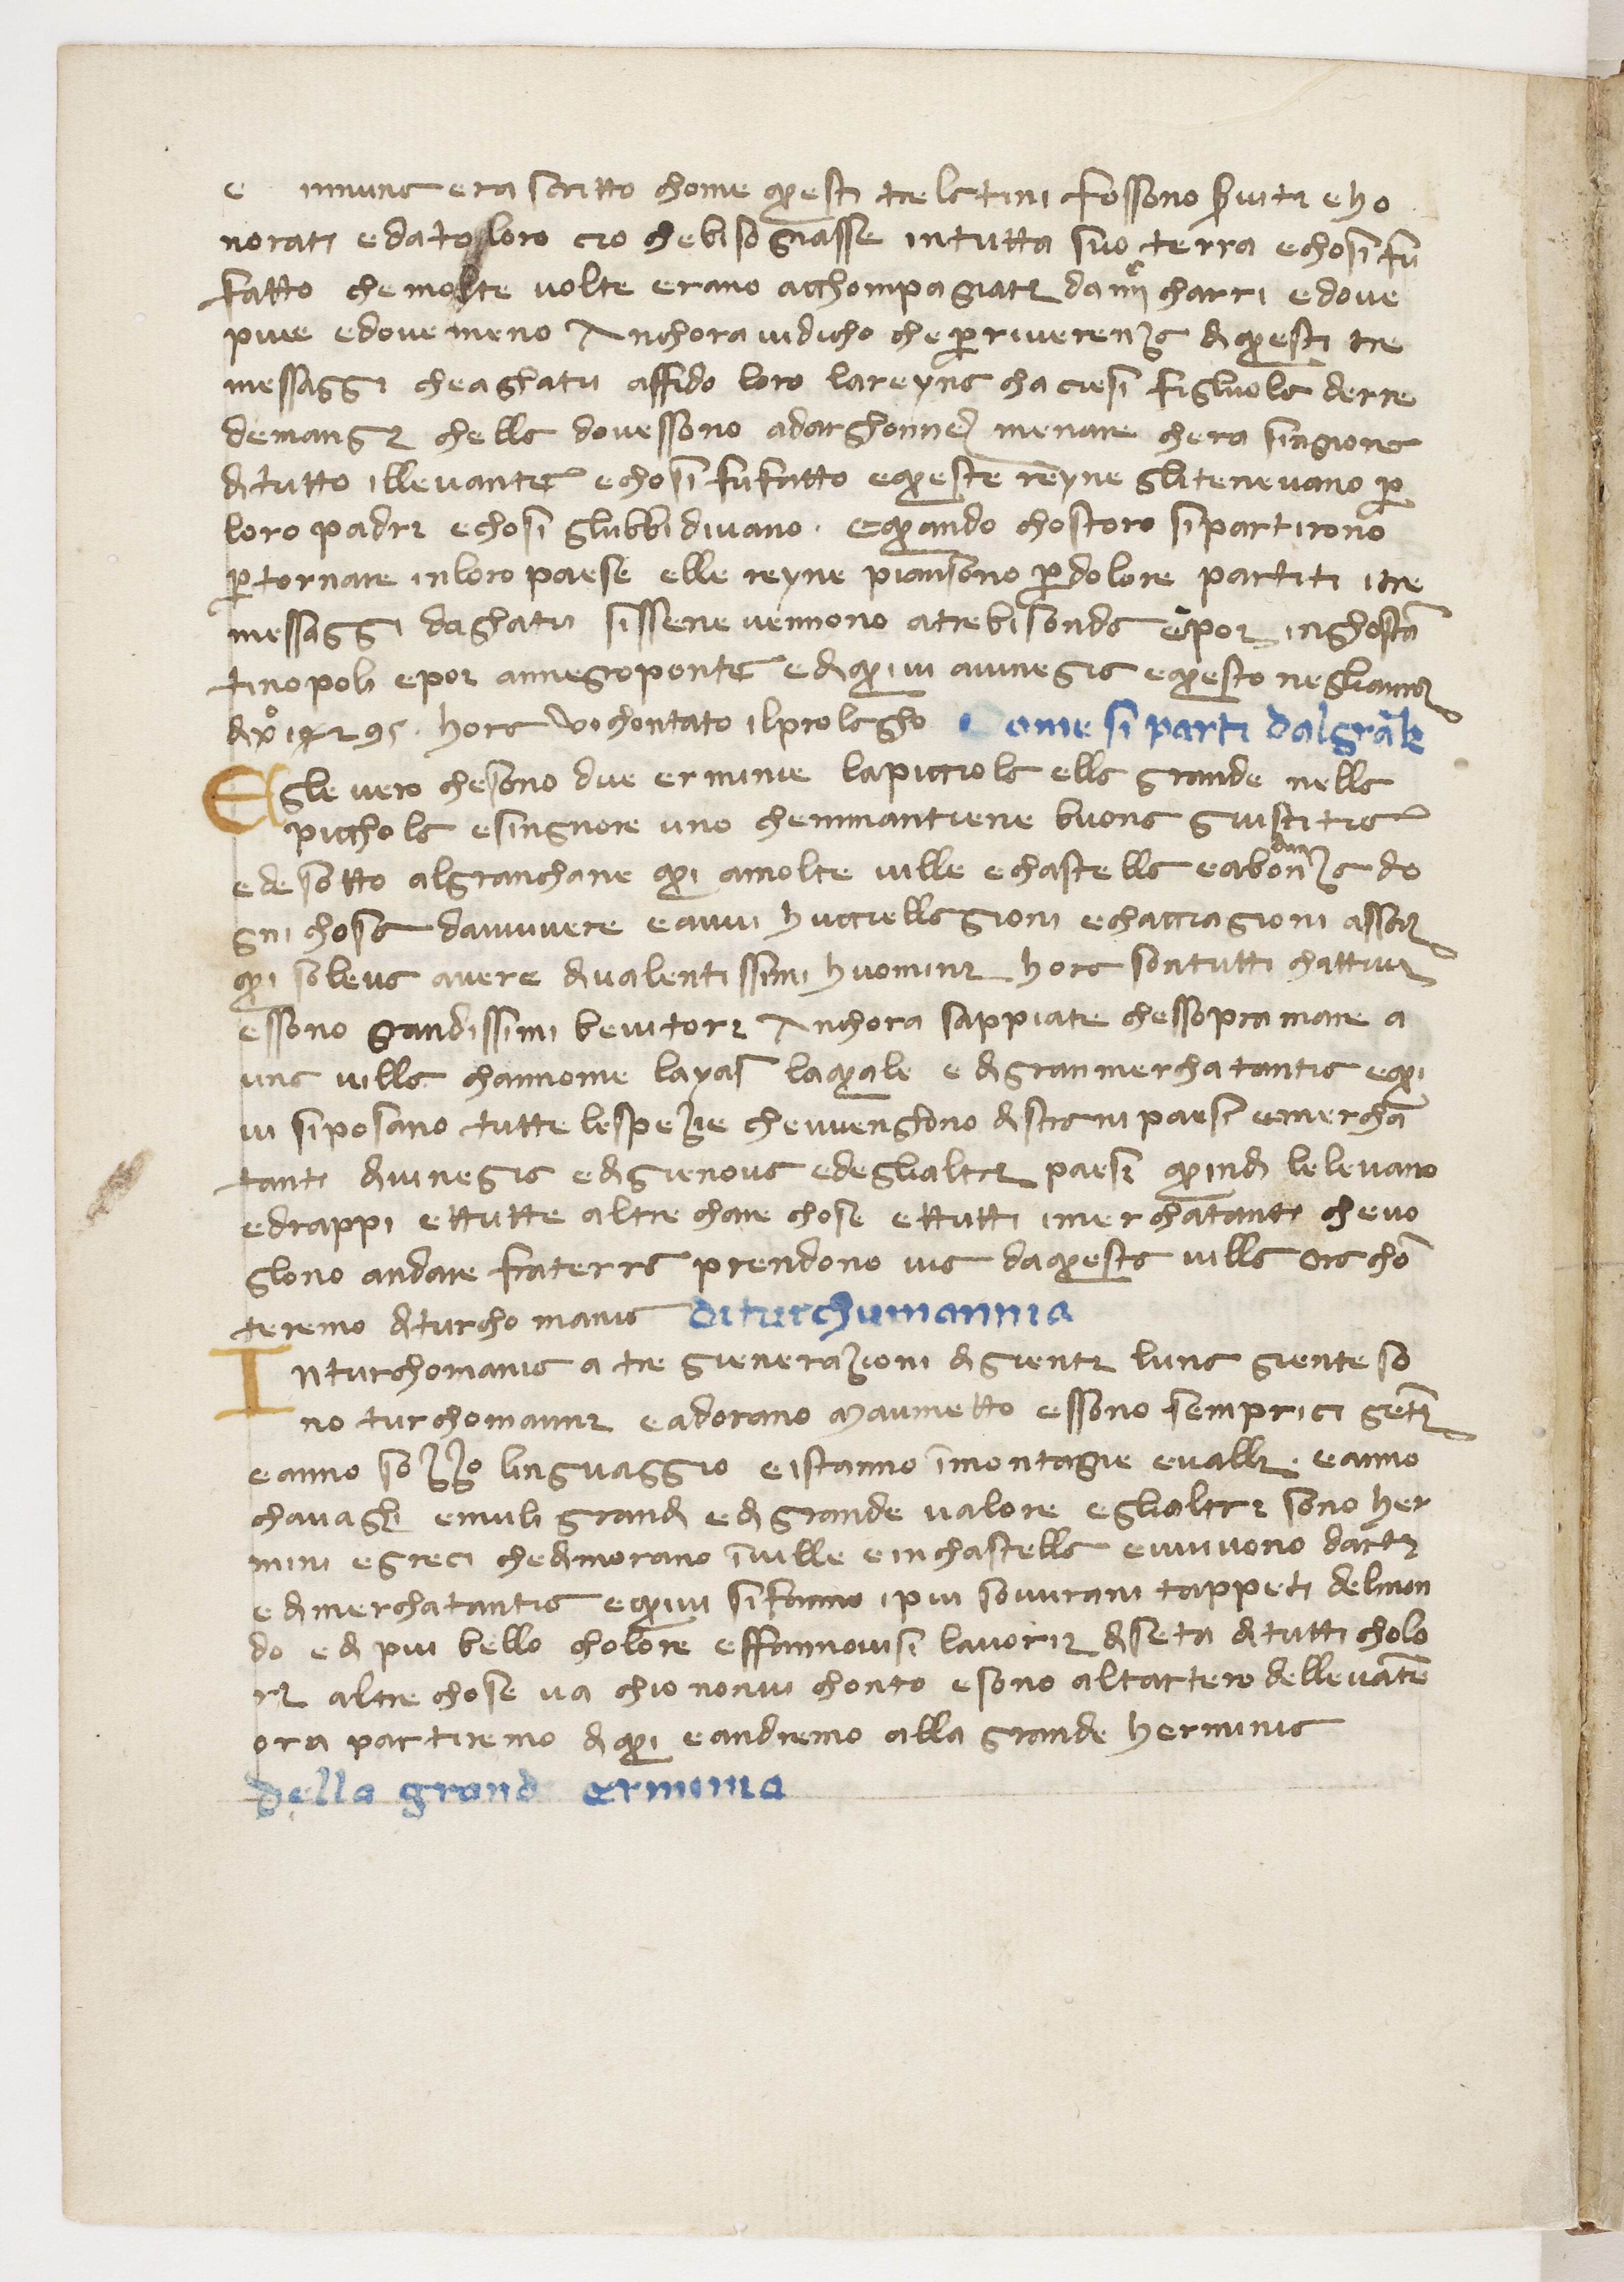 e innuna era scritto chome questi tre latini fossono seruiti e ho
norati e dato loro cio che bisognasse in tutta suo terra e chosi fu
fatto che molte volte erano acchompagnati da iiijc charri e dove
piue e dove meno Anchora vi dicho che per riverenza di questi tre
messaggi che aghatu affido loro la reyna chacciesi figluola del re
de mangi chella dovessono ad arghonne menare chera singniore
di tutto illevante e chosi fu fatto e queste reyne gli tenevano per
loro padri e chosi glubbidivano. E quando chostoro si partirono
per tornare in loro paese elle reyne piansono per dolore partiti i tre
messaggi daghatu sissene vennono a trebisonda e poi inghostan
tinopoli e poi annegroponte e di quivi a vinegia e questo negli anni
di xo 1295. hora vi chontato il prolagho Come si parti dal gra k
Egle vero che sono due erminie la picciola ella grande nella
picchola e singnore uno che mmantiene buona giustitia
ed e sotto al gran chane qui a molte ville e chastella e abondanza do
gni chosa da vivere e a vvi huccellagioni e chacciagioni assai
qui soleva avere di valentissimi huomini hora son tutti chattivi
e ssono grandissimi bevitori Anchora sappiate che ssopra mare a
una villa channome layas la quale e di gran merchatantia e qui
vi si posano tutte le spezie che vvenghono di strani paesi e merchan
tanti di vinegia e di gienova e degli altri paesi quindi le levano
e drappi e ttutte altre chare chose e ttutti i merchatanti che vo
glono andare fra terra prendono via da questa villa ora chon
teremo di turchomania Di turchumannia
In turchomania a tre gienerazioni di gienti luna giente so
no turchomanni e adorano Maumetto e ssono semprici genti
e anno sozzo linguaggio e istanno in montagne e valli. e anno
chavagli e muli grandi e di grande valore e gli altri sono her
mini e greci che dimorano in ville e in chastella e vivono darti
e di merchatantia e quivi si fanno i piu sovvrani tappeti del mon
do e di piu bello cholore e ffannovisi lavorii di seta di tutti cholo
ri altre chose va chio non vi chonto e sono al tartero dellevante
ora partiremo di qui e andremo alla grande herminia
della grand erminia